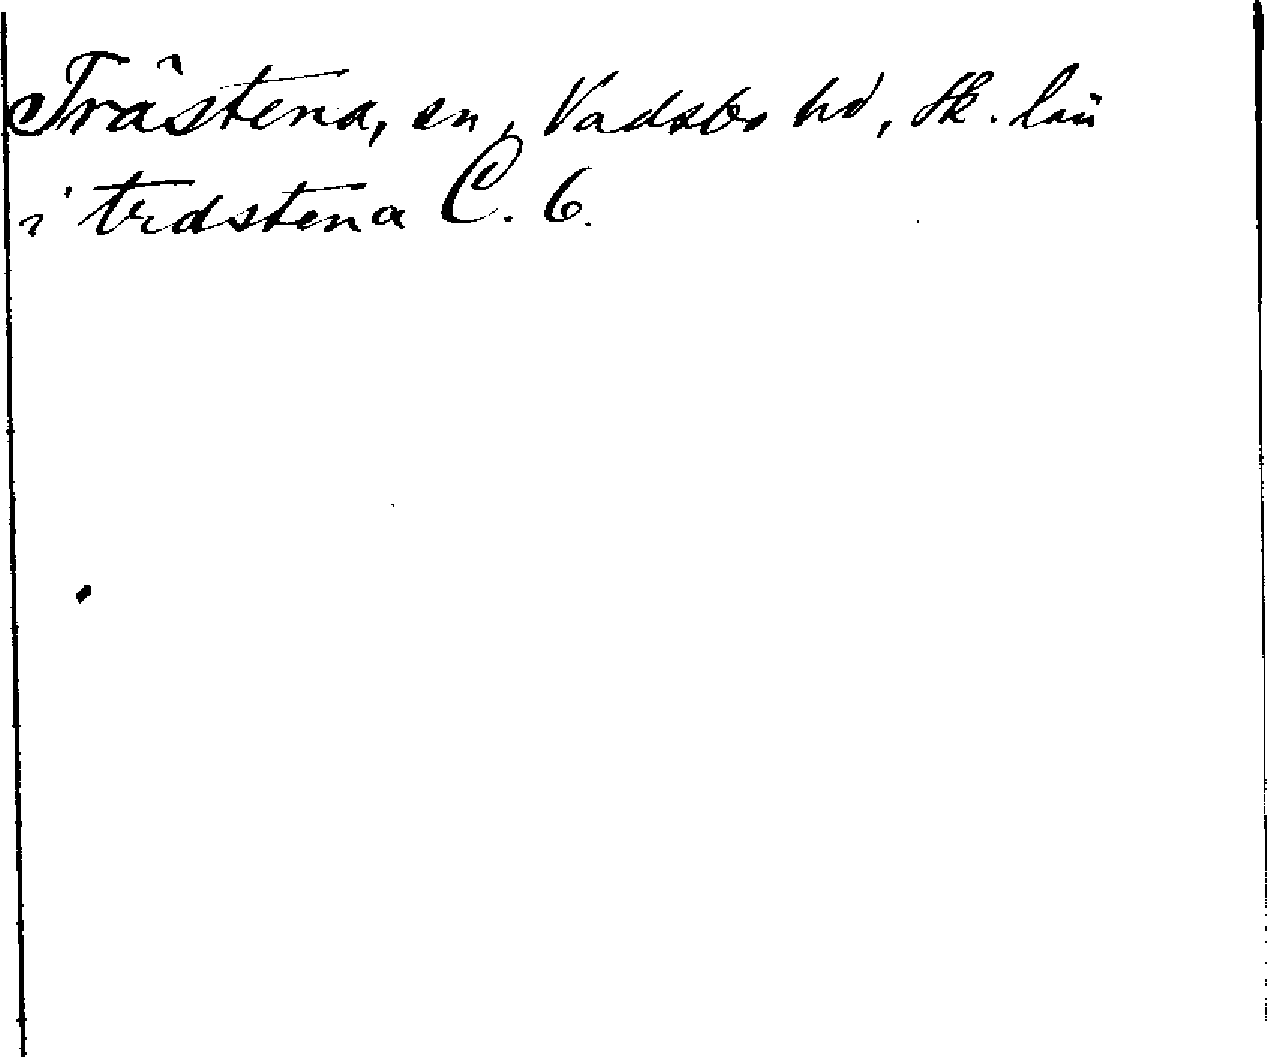 Trästena, sn, Vadsbo hd, Sk. län
i trästena C. 6.